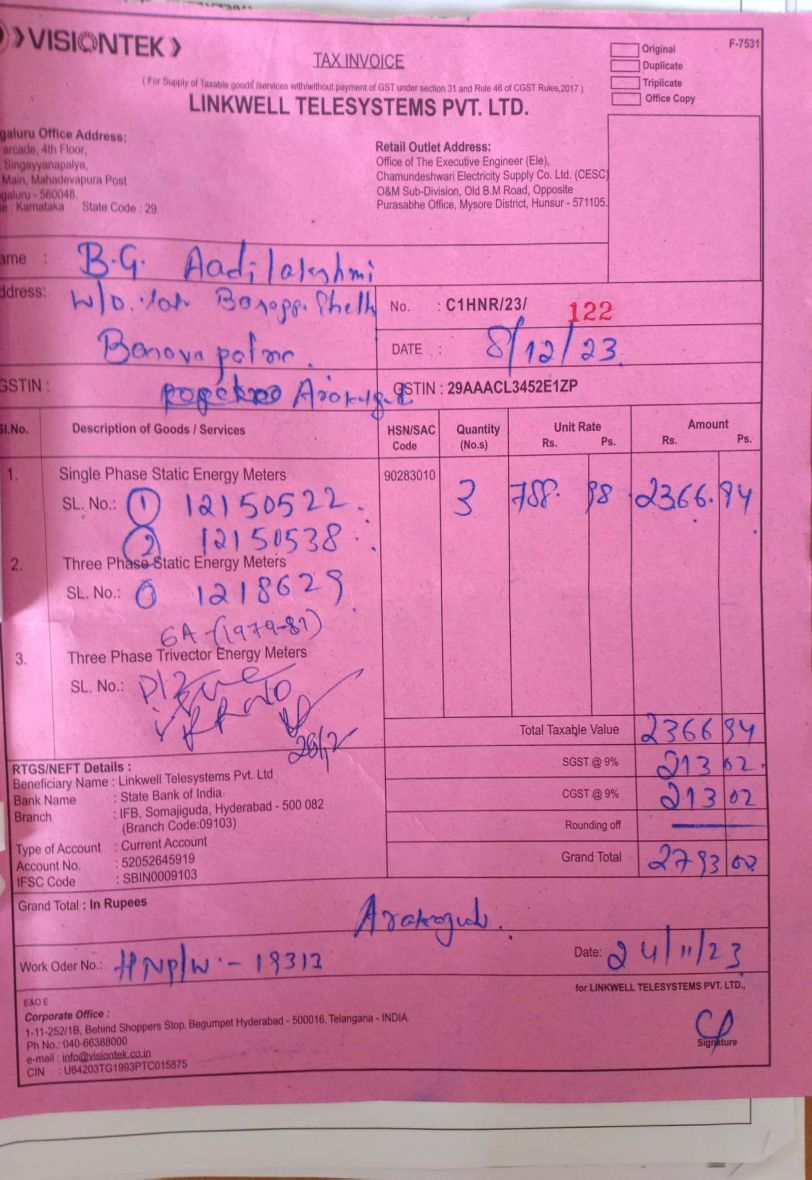 VISIONTEK
TAX INVOICE
Original
Duplicate
Triplicate
Office Copy
F-7531
( For Supply of Taxable goods /services with/without payment of GST under section 31 and Rule 46 of CGST Rules,2017 )
LINKWELL TELESYSTEMS PVT. LTD.
galuru Office Address:
arcade, 4th Floor,
Singayyanapalya,
Main, Mahadevapura Post
galuru - 560048.
te : Karnataka State Code : 29
Retail Outlet Address:
Office of The Executive Engineer (Ele),
Chamundeshwari Electricity Supply Co. Ltd. (CESC)
O&M Sub-Division, Old B.M Road, Opposite
Purasabhe Office, Mysore District, Hunsur - 571105.
ame : B.G. Aadilakshmi
ddress: W/o. Shetty
No. : C1HNR/23/ 122
DATE : 8/12/23
GSTIN :
GSTIN : 29AAACL3452E1ZP
Sl.No. Description of Goods / Services HSN/SAC Code Quantity (No.s) Unit Rate Rs. Ps. Amount Rs. Ps.
1. Single Phase Static Energy Meters 90283010 3 788. 98 2366.94
SL. No.: 1 12150522
2 12150538
2. Three Phase Static Energy Meters
SL. No.: 1218629
6A-(1979-81)
3. Three Phase Trivector Energy Meters
SL. No.:
28/12
Total Taxable Value 2366 94
SGST @ 9% 213 02
CGST @ 9% 213 02
Rounding off
Grand Total 2793 00
RTGS/NEFT Details :
Beneficiary Name : Linkwell Telesystems Pvt. Ltd
Bank Name : State Bank of India
Branch : IFB, Somajiguda, Hyderabad - 500 082
(Branch Code:09103)
Type of Account : Current Account
Account No. : 52052645919
IFSC Code : SBIN0009103
Grand Total : In Rupees
Work Oder No.: 19313
Date: 24/11/23
for LINKWELL TELESYSTEMS PVT. LTD.,
E&O E
Corporate Office :
1-11-252/1B, Behind Shoppers Stop, Begumpet Hyderabad - 500016, Telangana - INDIA
Ph No.: 040-66388000
e-mail : info@visiontek.co.in
CIN : U64203TG1993PTC015875
Signature